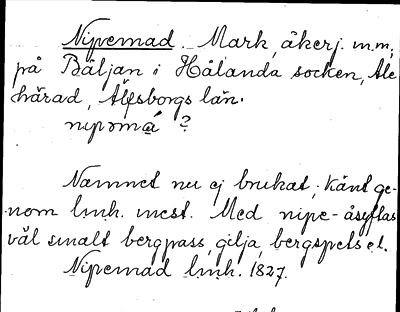 Nipemad. Mark, åkerj. m.m,
på Bäljan i Hålanda socken, Ale
härad, Älfsborgs län.
nipəma ?
Namnet nu ej brukat; känt ge-
nom lmh. inest. Med nipe- åsyftas
väl smalt bergpass, gilja, bergspets el.
Nipemad lmh. 1827.